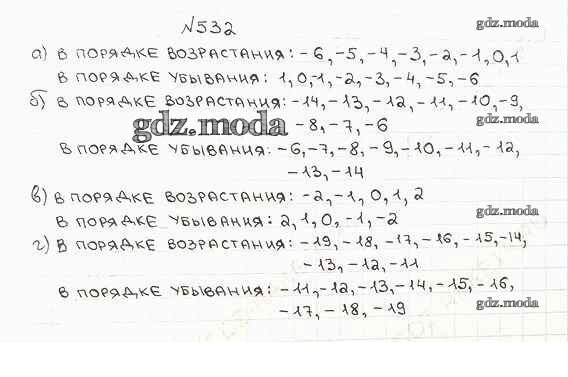 №532
gdz.moda
а) В ПОРЯДКЕ ВОЗРАСТАНИЯ: -6, -5, -4, -3, -2, -1, 0, 1
В ПОРЯДКЕ УБЫВАНИЯ: 1, 0, 1, -2, -3, -4, -5, -6
gdz.moda
б) В ПОРЯДКЕ ВОЗРАСТАНИЯ: -14, -13, -12, -11, -10, -9,
-8, -7, -6
gdz.moda
gdz.moda
В ПОРЯДКЕ УБЫВАНИЯ: -6, -7, -8, -9, -10, -11, -12,
-13, -14
в) В ПОРЯДКЕ ВОЗРАСТАНИЯ: -2, -1, 0, 1, 2
gdz.moda
В ПОРЯДКЕ УБЫВАНИЯ: 2, 1, 0, -1, -2
г) В ПОРЯДКЕ ВОЗРАСТАНИЯ: -19, -18, -17, -16, -15, -14,
-13, -12, -11
В ПОРЯДКЕ УБЫВАНИЯ: -11, -12, -13, -14, -15, -16,
-17, -18, -19
gdz.moda